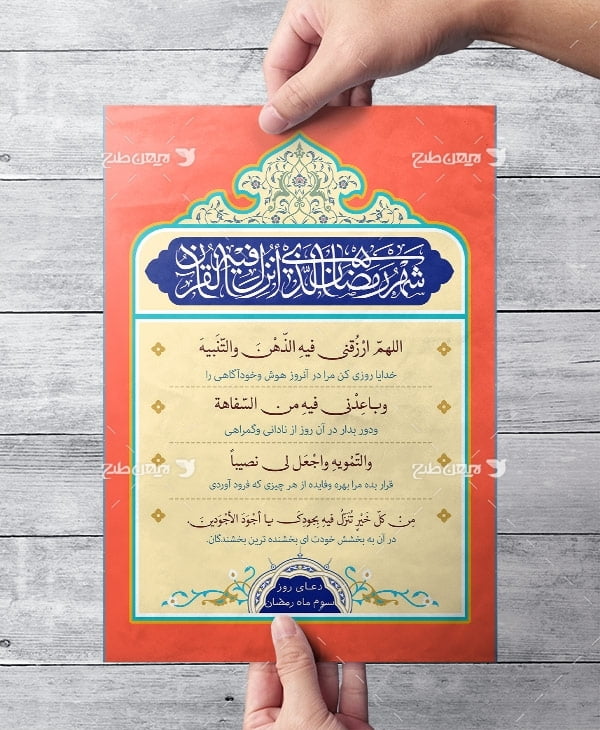 شَهْرُ رَمَضَانَ الَّذِي أُنْزِلَ فِيهِ الْقُرْآن
اللهمّ ارْزُقنی فیهِ الذّهْنَ والتّنْبیهَ
خدایا روزی کن مرا در آنروز هوش وخودآگاهی را
وباعِدْنی فیهِ من السّفاهة
ودور بدار در آن روز از نادانی وگمراهی
والتّمْویهِ واجْعَل لی نصیباً
قرار بده مرا بهره وفایده از هر چیزی که فرود آوردی
مِن کلّ خَیْرٍ تُنَزّلُ فیهِ بِجودِکَ یا أجْوَدَ الأجْوَدینَ.
در آن به بخشش خودت ای بخشنده ترین بخشندگان.
دعای روز
سوم ماه رمضان
میهن طرح
میهن طرح
میهن طرح
میهن طرح